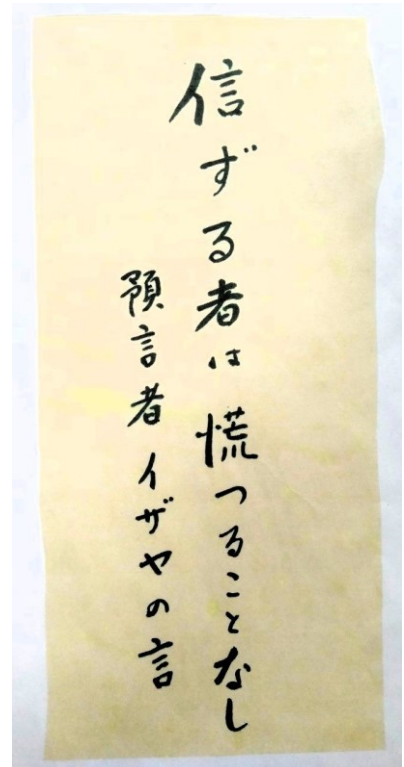 信ずる者は慌つることなし
預言者イザヤの言